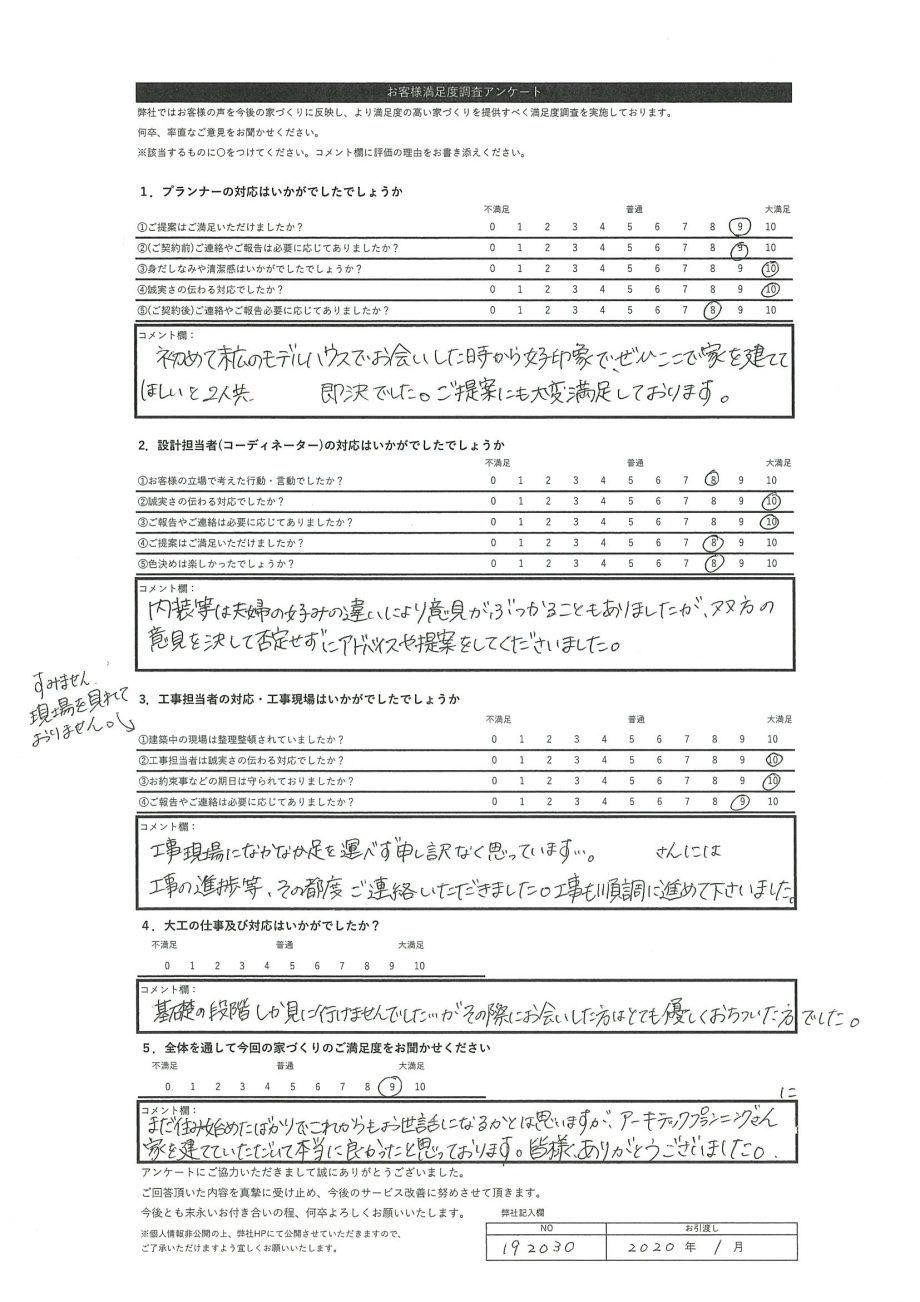 お客様満足度調査アンケート
弊社ではお客様の声を今後の家づくりに反映し、より満足度の高い家づくりを提供すべく満足度調査を実施しております。
何卒、率直なご意見をお聞かせください。
※該当するものに〇をつけてください。コメント欄に評価の理由をお書き添えください。
1．プランナーの対応はいかがでしたでしょうか
不満足 普通 大満足
①ご提案はご満足いただけましたか？ 0 1 2 3 4 5 6 7 8 9 10
②(ご契約前)ご連絡やご報告は必要に応じてありましたか？ 0 1 2 3 4 5 6 7 8 9 10
③身だしなみや清潔感はいかがでしたでしょうか？ 0 1 2 3 4 5 6 7 8 9 10
④誠実さの伝わる対応でしたか？ 0 1 2 3 4 5 6 7 8 9 10
⑤(ご契約後)ご連絡やご報告必要に応じてありましたか？ 0 1 2 3 4 5 6 7 8 9 10
コメント欄：
初めて末広のモデルハウスでお会いした時から好印象で、ぜひここで家を建てて
ほしいと2人共 即決でした。ご提案にも大変満足しております。
2．設計担当者(コーディネーター)の対応はいかがでしたでしょうか
不満足 普通 大満足
①お客様の立場で考えた行動・言動でしたか？ 0 1 2 3 4 5 6 7 8 9 10
②誠実さの伝わる対応でしたか？ 0 1 2 3 4 5 6 7 8 9 10
③ご報告やご連絡は必要に応じてありましたか？ 0 1 2 3 4 5 6 7 8 9 10
④ご提案はご満足いただけましたか？ 0 1 2 3 4 5 6 7 8 9 10
⑤色決めは楽しかったでしょうか？ 0 1 2 3 4 5 6 7 8 9 10
コメント欄：
内装等は夫婦の好みの違いにより意見がぶつかることもありましたが、双方の
意見を決して否定せずにアドバイスや提案をしてくださいました。
すみません、
現場を見れて
おりません。
3．工事担当者の対応・工事現場はいかがでしたでしょうか
不満足 普通 大満足
①建築中の現場は整理整頓されていましたか？ 0 1 2 3 4 5 6 7 8 9 10
②工事担当者は誠実さの伝わる対応でしたか？ 0 1 2 3 4 5 6 7 8 9 10
③お約束事などの期日は守られておりましたか？ 0 1 2 3 4 5 6 7 8 9 10
④ご報告やご連絡は必要に応じてありましたか？ 0 1 2 3 4 5 6 7 8 9 10
コメント欄：
工事現場になかなか足を運べず申し訳なく思っています…。 さんには
工事の進捗等、その都度ご連絡いただきました。工事も順調に進めて下さいました。
4．大工の仕事及び対応はいかがでしたか？
不満足 普通 大満足
0 1 2 3 4 5 6 7 8 9 10
コメント欄：
基礎の段階しか見に行けませんでした…がその際にお会いした方はとても優しくおちついた方でした。
5．全体を通して今回の家づくりのご満足度をお聞かせください
不満足 普通 大満足
0 1 2 3 4 5 6 7 8 9 10
コメント欄：
まだ住み始めたばかりでこれからもお世話になるかとは思いますが、アーキテックプランニングさんに
家を建てていただいて本当に良かったと思っております。皆様、ありがとうございました。
アンケートにご協力いただきまして誠にありがとうございました。
ご回答頂いた内容を真摯に受け止め、今後のサービス改善に努めさせて頂きます。
今後とも末永いお付き合いの程、何卒よろしくお願いいたします。
弊社記入欄
※個人情報非公開の上、弊社HPにて公開させていただきますので、
ご了承いただけますよう宜しくお願いいたします。
NO お引渡し
192030 2020 年 1 月